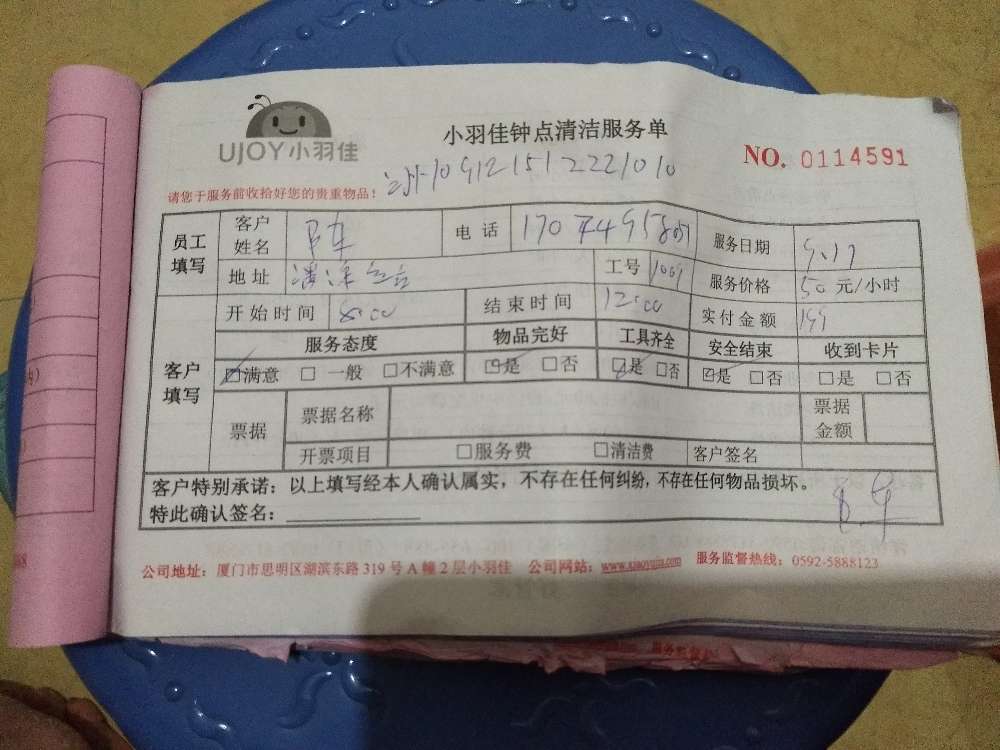 UJOY小羽佳
小羽佳钟点清洁服务单
NO. 0114591
请您于服务前收拾好您的贵重物品!
员工填写 客户姓名 电话 服务日期 9.17
地址 工号 服务价格 50 元/小时
客户填写 开始时间 8:00 结束时间 12:00 实付金额 199
服务态度 物品完好 工具齐全 安全结束 收到卡片
☑满意 □一般 □不满意 ☑是 □否 ☑是 □否 ☑是 □否 □是 □否
票据 票据名称 票据金额
开票项目 □服务费 □清洁费 客户签名
客户特别承诺：以上填写经本人确认属实，不存在任何纠纷，不存在任何物品损坏。
特此确认签名：
公司地址：厦门市思明区湖滨东路 319 号 A 幢 2 层小羽佳 公司网站：www.xiaoyujia.com 服务监督热线：0592-5888123